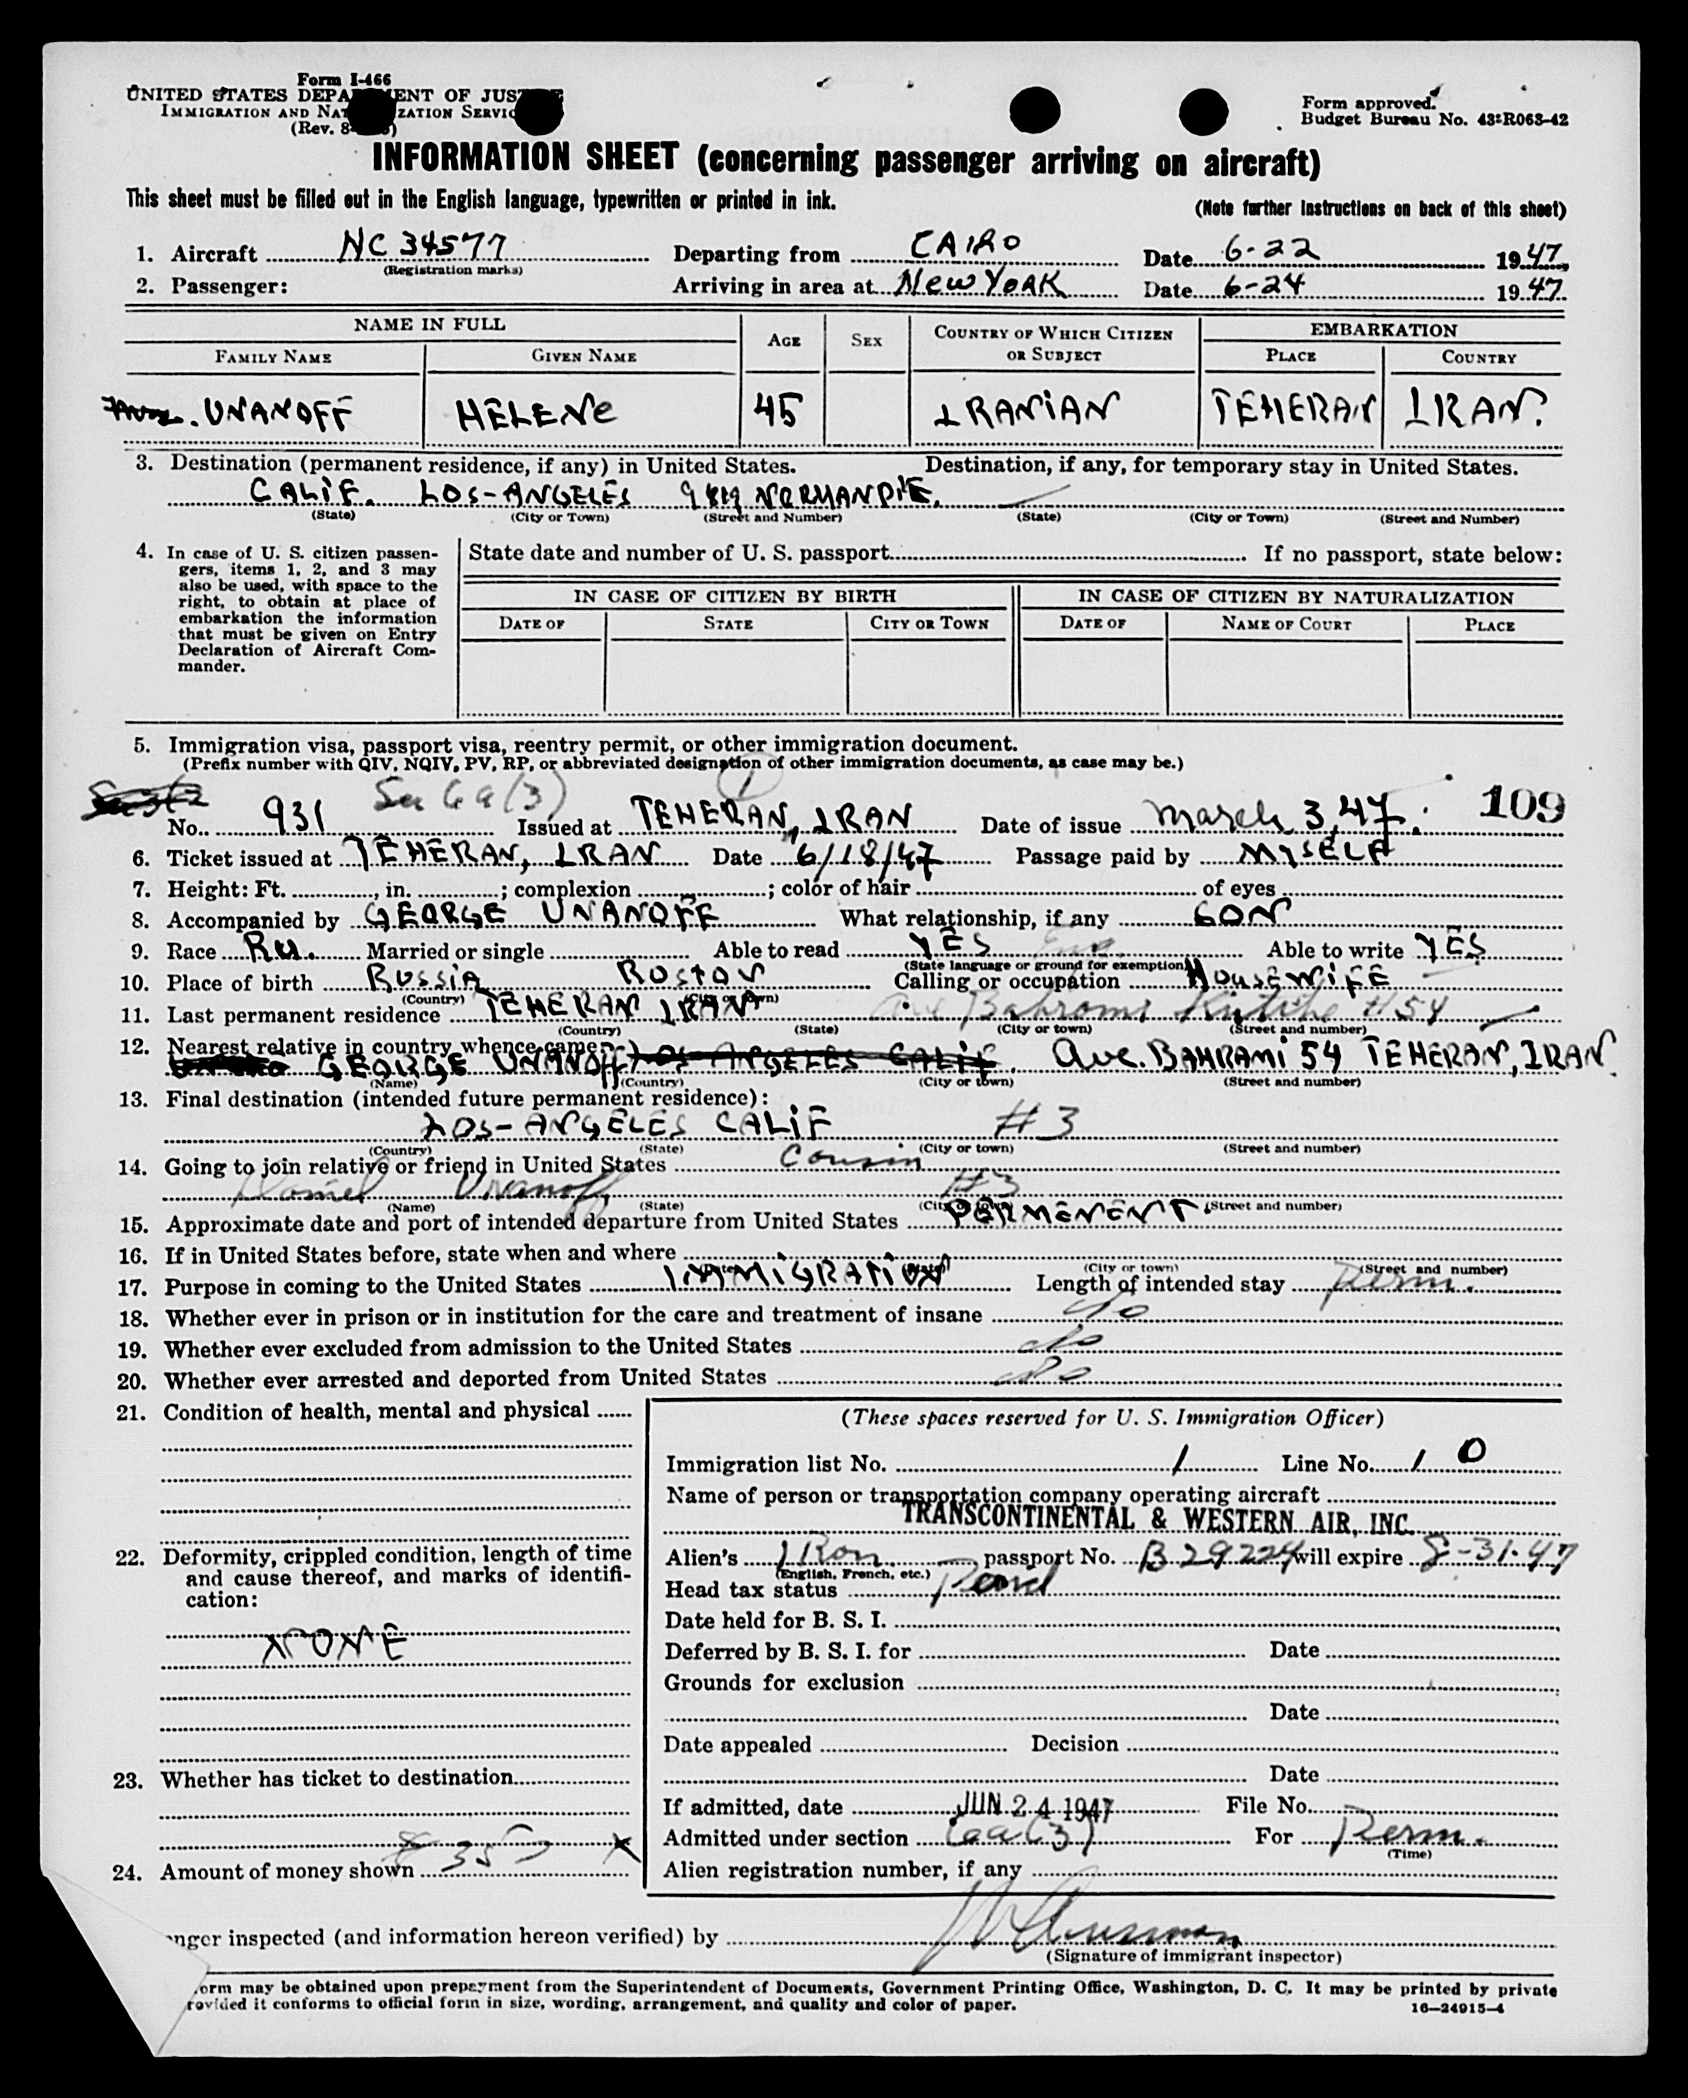 Form I-466
UNITED STATES DEPA ENT OF JUS
IMMIGRATION AND NAT ZATION SERVIC
(Rev. 8- )
Form approved.
Budget Bureau No. 43-R063-42
INFORMATION SHEET (concerning passenger arriving on aircraft)
This sheet must be filled out in the English language, typewritten or printed in ink.
(Note further instructions on back of this sheet)
1. Aircraft NC 34577 Departing from CAIRO Date 6-22 1947,
(Registration marks)
2. Passenger: Arriving in area at New YORK Date 6-24 1947.
NAME IN FULL AGE SEX COUNTRY OF WHICH CITIZEN OR SUBJECT EMBARKATION
FAMILY NAME GIVEN NAME PLACE COUNTRY
UNANOFF HELENe 45 IRANIAN TEHERAN IRAN.
3. Destination (permanent residence, if any) in United States. Destination, if any, for temporary stay in United States.
CALIF. LOS-ANGELES 9819 NORMANDIE.
(State) (City or Town) (Street and Number) (State) (City or Town) (Street and Number)
4. In case of U. S. citizen passen-
gers, items 1, 2, and 3 may
also be used, with space to the
right, to obtain at place of
embarkation the information
that must be given on Entry
Declaration of Aircraft Com-
mander.
State date and number of U. S. passport If no passport, state below:
IN CASE OF CITIZEN BY BIRTH IN CASE OF CITIZEN BY NATURALIZATION
DATE OF STATE CITY OR TOWN DATE OF NAME OF COURT PLACE
5. Immigration visa, passport visa, reentry permit, or other immigration document.
(Prefix number with QIV, NQIV, PV, RP, or abbreviated designation of other immigration documents, as case may be.)
Sec 6a(3) 1
No. 931 Issued at TEHERAN, IRAN Date of issue March 3, 47. 109
6. Ticket issued at TEHERAN, IRAN Date 6/18/47 Passage paid by MYSELF
7. Height: Ft. , in. ; complexion ; color of hair of eyes
8. Accompanied by GEORGE UNANOFF What relationship, if any SON
9. Race RU. Married or single Able to read YES Eng. Able to write YES
(State language or ground for exemption)
10. Place of birth RUSSIA ROSTOV Calling or occupation HOUSEWIFE
(Country) (City or town)
11. Last permanent residence TEHERAN IRAN Ave Bahrami #54
(Country) (State) (City or town) (Street and number)
12. Nearest relative in country whence came:
GEORGE UNANOFF LOS ANGELES CALIF. Ave. BAHRAMI 54 TEHERAN, IRAN.
(Name) (Country) (City or town) (Street and number)
13. Final destination (intended future permanent residence):
LOS-ANGELES CALIF #3
(Country) (State) (City or town) (Street and number)
14. Going to join relative or friend in United States Cousin
Daniel Unanoff #3
(Name) (State) (City or town) (Street and number)
15. Approximate date and port of intended departure from United States PERMENENT.
16. If in United States before, state when and where
(Date) (State) (City or town) (Street and number)
17. Purpose in coming to the United States IMMIGRATION Length of intended stay Perm.
18. Whether ever in prison or in institution for the care and treatment of insane No
19. Whether ever excluded from admission to the United States No
20. Whether ever arrested and deported from United States No
21. Condition of health, mental and physical
22. Deformity, crippled condition, length of time
and cause thereof, and marks of identifi-
cation:
NONE
23. Whether has ticket to destination
24. Amount of money shown $ 350
(These spaces reserved for U. S. Immigration Officer)
Immigration list No. 1 Line No. 10
Name of person or transportation company operating aircraft
TRANSCONTINENTAL & WESTERN AIR, INC.
Alien's Iran. passport No. B 29224 will expire 8-31-47
(English, French, etc.)
Head tax status Paid
Date held for B. S. I.
Deferred by B. S. I. for Date
Grounds for exclusion
Date
Date appealed Decision
Date
If admitted, date JUN 24 1947 File No.
Admitted under section 6a(3) For Perm.
(Time)
Alien registration number, if any
nger inspected (and information hereon verified) by
(Signature of immigrant inspector)
orm may be obtained upon prepayment from the Superintendent of Documents, Government Printing Office, Washington, D. C. It may be printed by private
rovided it conforms to official form in size, wording, arrangement, and quality and color of paper.
16-24915-4